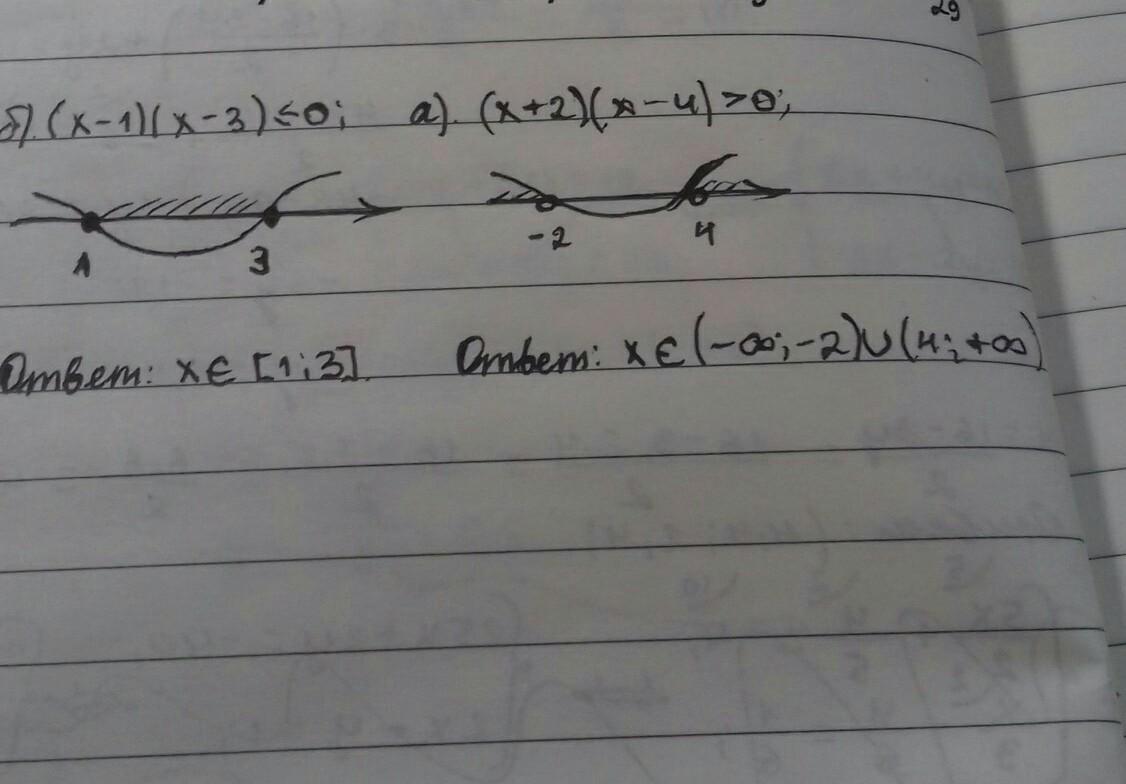 29
б). (x-1)(x-3)≤0; а). (x+2)(x-4)>0;
1 3 -2 4
Ответ: x∈[1;3]. Ответ: x∈(-∞;-2)∪(4;+∞)